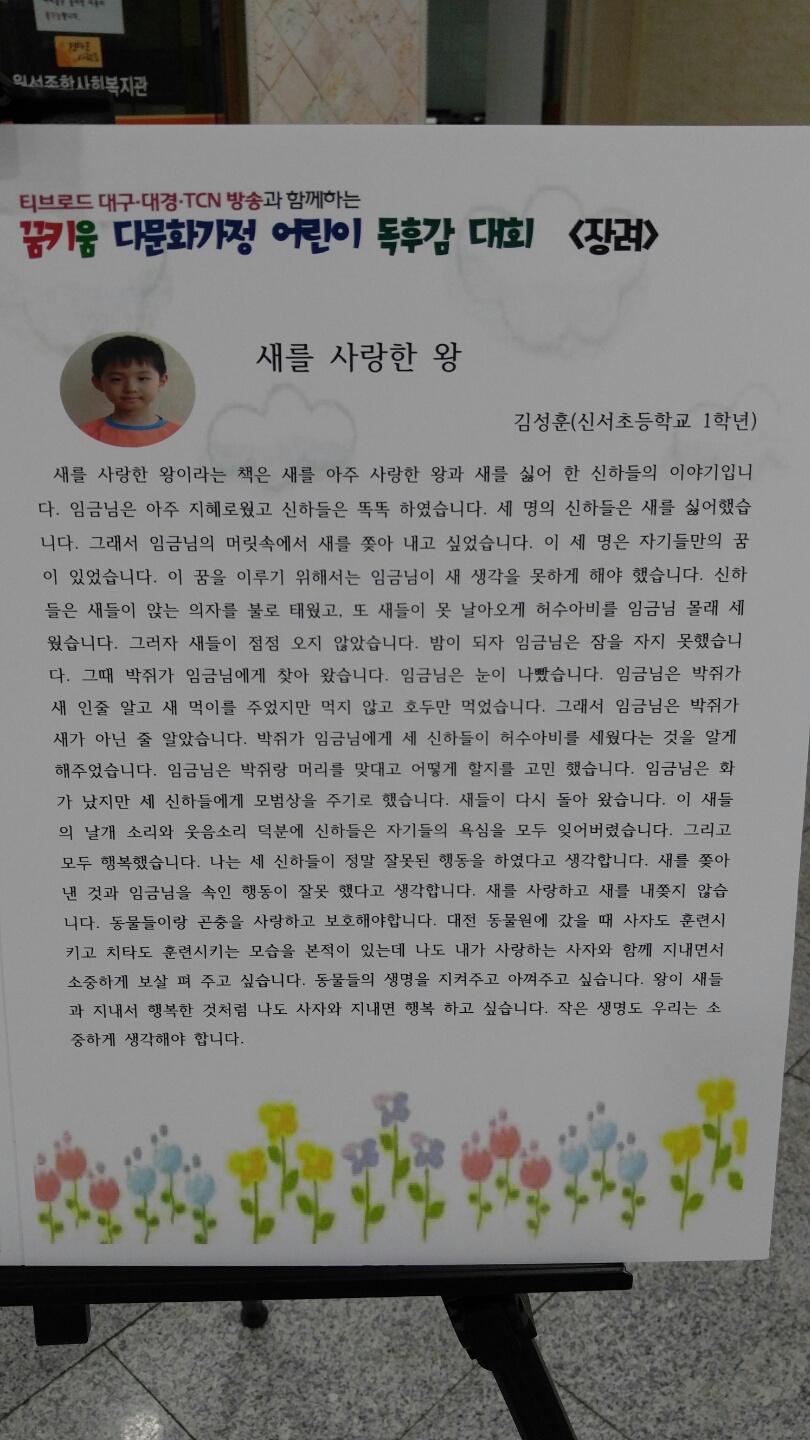 티브로드 대구·대경·TCN 방송과 함께하는
꿈키움 다문화가정 어린이 독후감 대회 <장려>
새를 사랑한 왕
김성훈(신서초등학교 1학년)
새를 사랑한 왕이라는 책은 새를 아주 사랑한 왕과 새를 싫어 한 신하들의 이야기입니
다. 임금님은 아주 지혜로웠고 신하들은 똑똑 하였습니다. 세 명의 신하들은 새를 싫어했습
니다. 그래서 임금님의 머릿속에서 새를 쫒아 내고 싶었습니다. 이 세 명은 자기들만의 꿈
이 있었습니다. 이 꿈을 이루기 위해서는 임금님이 새 생각을 못하게 해야 했습니다. 신하
들은 새들이 앉는 의자를 불로 태웠고, 또 새들이 못 날아오게 허수아비를 임금님 몰래 세
웠습니다. 그러자 새들이 점점 오지 않았습니다. 밤이 되자 임금님은 잠을 자지 못했습니
다. 그때 박쥐가 임금님에게 찾아 왔습니다. 임금님은 눈이 나빴습니다. 임금님은 박쥐가
새 인줄 알고 새 먹이를 주었지만 먹지 않고 호두만 먹었습니다. 그래서 임금님은 박쥐가
새가 아닌 줄 알았습니다. 박쥐가 임금님에게 세 신하들이 허수아비를 세웠다는 것을 알게
해주었습니다. 임금님은 박쥐랑 머리를 맞대고 어떻게 할지를 고민 했습니다. 임금님은 화
가 났지만 세 신하들에게 모범상을 주기로 했습니다. 새들이 다시 돌아 왔습니다. 이 새들
의 날개 소리와 웃음소리 덕분에 신하들은 자기들의 욕심을 모두 잊어버렸습니다. 그리고
모두 행복했습니다. 나는 세 신하들이 정말 잘못된 행동을 하였다고 생각합니다. 새를 쫒아
낸 것과 임금님을 속인 행동이 잘못 했다고 생각합니다. 새를 사랑하고 새를 내쫒지 않습
니다. 동물들이랑 곤충을 사랑하고 보호해야합니다. 대전 동물원에 갔을 때 사자도 훈련시
키고 치타도 훈련시키는 모습을 본적이 있는데 나도 내가 사랑하는 사자와 함께 지내면서
소중하게 보살 펴 주고 싶습니다. 동물들의 생명을 지켜주고 아껴주고 싶습니다. 왕이 새들
과 지내서 행복한 것처럼 나도 사자와 지내면 행복 하고 싶습니다. 작은 생명도 우리는 소
중하게 생각해야 합니다.